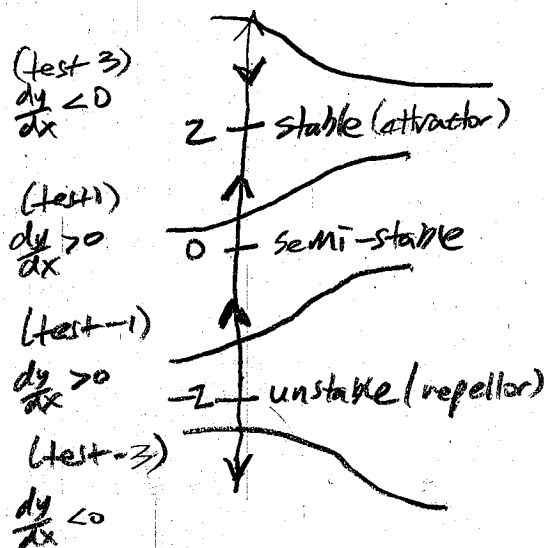 (test 3)
dy/dx < 0
2 stable (attractor)
(test 1)
dy/dx > 0
0 semi-stable
(test -1)
dy/dx > 0
-2 unstable (repellor)
(test -3)
dy/dx < 0